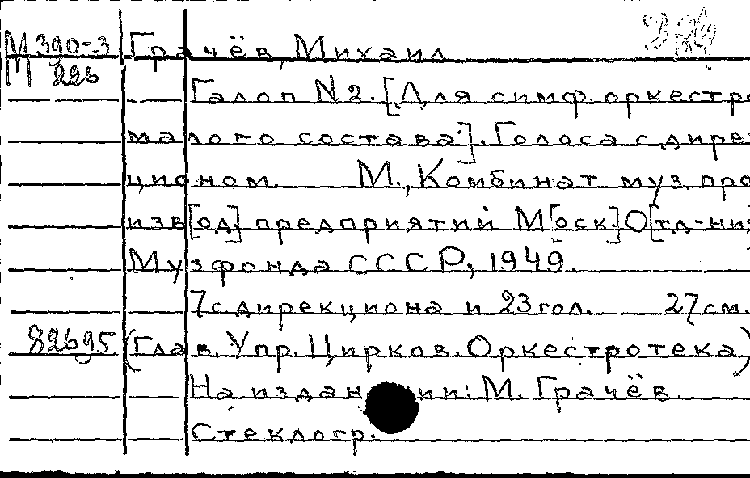 М 390-3 Грачёв, Михаил
М 226
Галоп №2. [Для симф. оркестр
малого состава]. Голоса с дирек
ционом. М., Комбинат муз. про
изв[од] предприятий М[оск] О[тд-ния
Музфонда СССР, 1949.
7 с. дирекциона и 23 гол. 27 см.
82695 (Глав. Упр. Цирков. Оркестротека)
На издании: М. Грачёв.
Стеклогр.